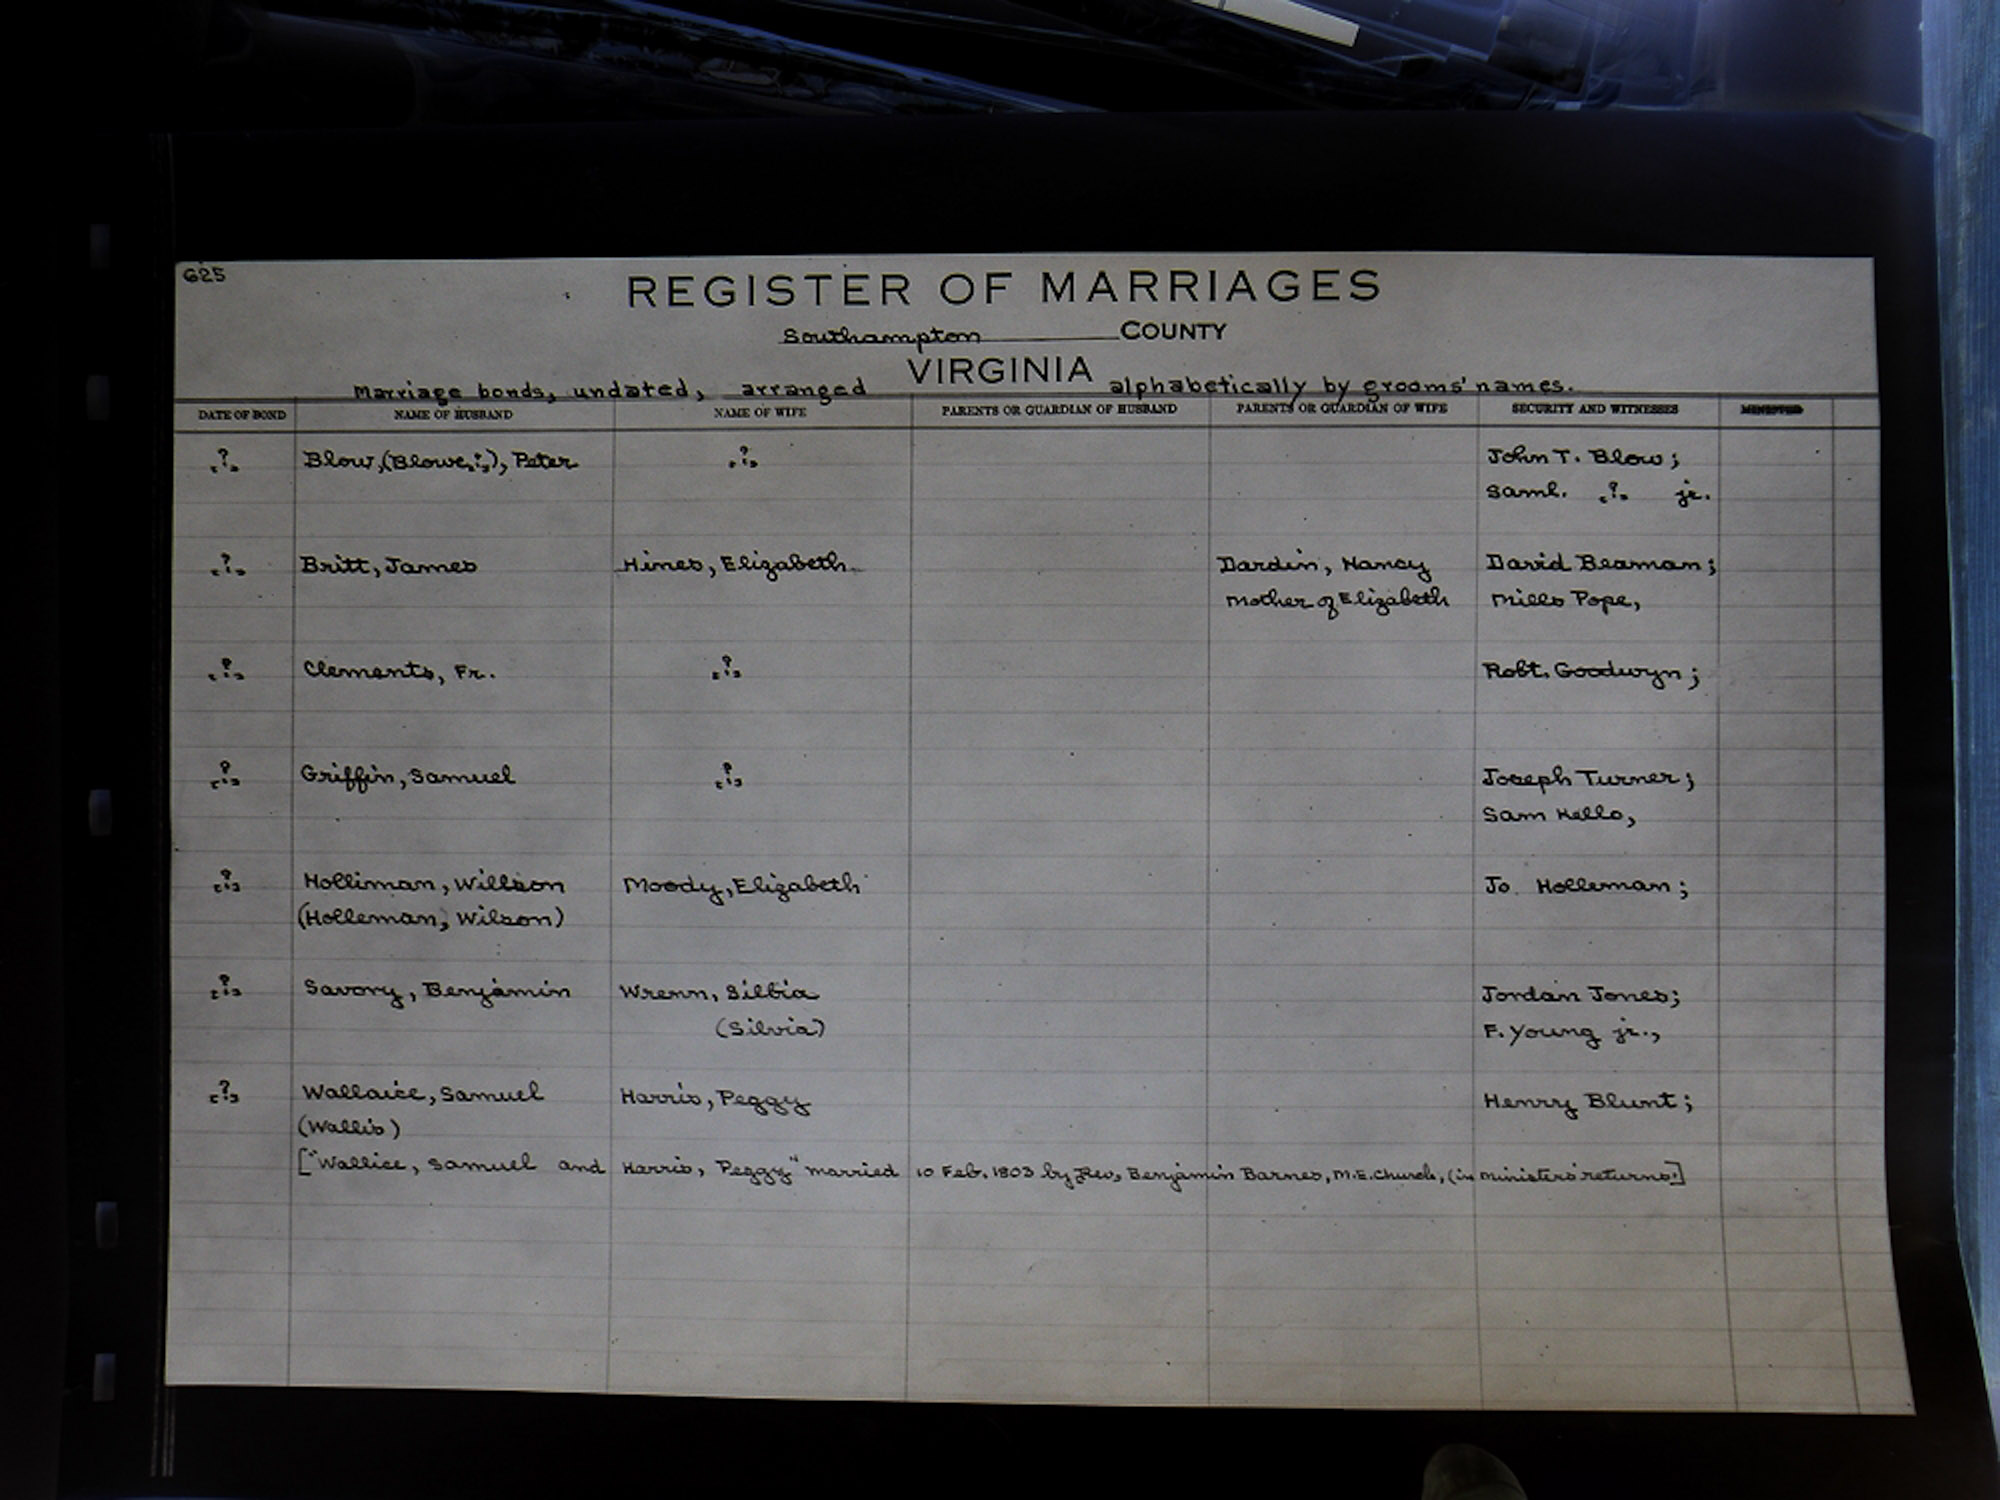 625
REGISTER OF MARRIAGES
Southampton COUNTY
VIRGINIA
Marriage bonds, undated, arranged alphabetically by grooms' names.
DATE OF BOND NAME OF HUSBAND NAME OF WIFE PARENTS OR GUARDIAN OF HUSBAND PARENTS OR GUARDIAN OF WIFE SECURITY AND WITNESSES
¿?? Blow, (Blowe,¿?), Peter ¿?? John T. Blow;
Saml. ¿?? jr.
¿?? Britt, James Hines, Elizabeth Dardin, Nancy David Beaman;
Mother of Elizabeth Mills Pope,
¿?? Clements, Fr. ¿?? Robt. Goodwyn;
¿?? Griffin, Samuel ¿?? Joseph Turner;
Sam Kello,
¿?? Holliman, Willson Moody, Elizabeth Jo. Holleman;
(Holleman, Wilson)
¿?? Savory, Benjamin Wrenn, Silbia Jordan Jones;
(Silvia) F. Young jr.,
¿?? Wallaice, Samuel Harris, Peggy Henry Blunt;
(Wallis)
["Wallice, Samuel and Harris, Peggy" married 10 Feb. 1803 by Rev. Benjamin Barnes, M.E. Church, (in ministers' returns.]